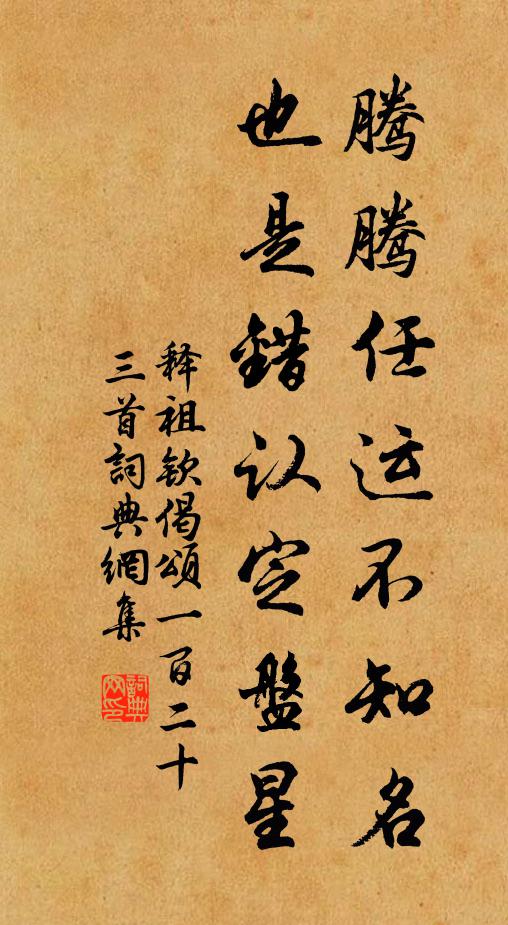 腾腾任运不知名
也是錯认定盤星
释祖钦偈頌一百二十
三首詞典網集
詞典網印